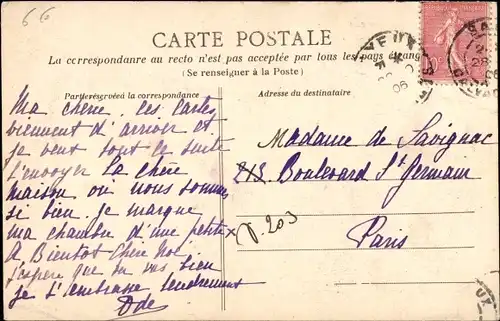 66
CARTE POSTALE
La correspondanre au recto n'est pas acceptée par tous les pays étrang
(Se renseigner à la Poste)
Partieréservéeà la correspondance
Adresse du destinataire
Ma chérie, ces cartes
viennent d'arriver et
je veux tout de suite
t'envoyer La chère
maison où nous sommes
si bien. Je marque
ma chambre d'une petite x
A Bientot Chère
j'espère que tu vas bien
je t'embrasse tendrement
Ode
Madame de Savignac
213 Boulevard St Germain
V. 203
Paris